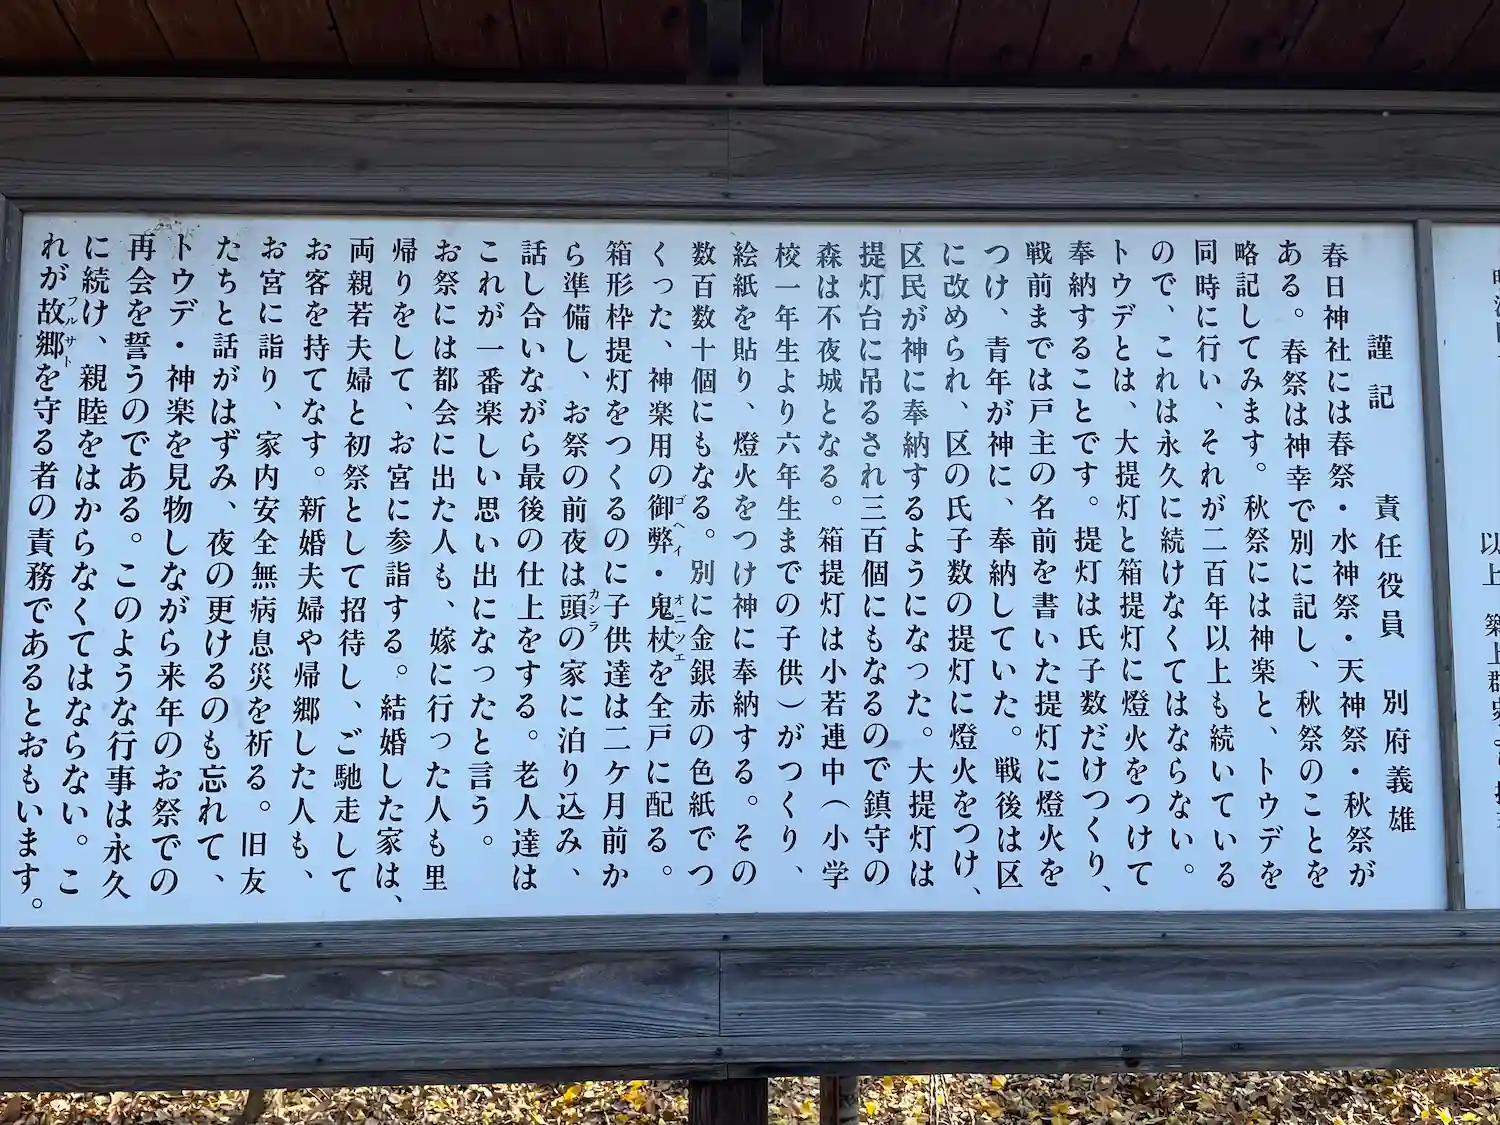 謹記　責任役員　別府義雄
春日神社には春祭・水神祭・天神祭・秋祭が
ある。春祭は神幸で別に記し、秋祭のことを
略記してみます。秋祭には神楽と、トウデを
同時に行い、それが二百年以上も続いている
ので、これは永久に続けなくてはならない。
トウデとは、大提灯と箱提灯に燈火をつけて
奉納することです。提灯は氏子数だけつくり、
戦前までは戸主の名前を書いた提灯に燈火を
つけ、青年が神に、奉納していた。戦後は区
に改められ、区の氏子数の提灯に燈火をつけ、
区民が神に奉納するようになった。大提灯は
提灯台に吊るされ三百個にもなるので鎮守の
森は不夜城となる。箱提灯は小若連中（小学
校一年生より六年生までの子供）がつくり、
絵紙を貼り、燈火をつけ神に奉納する。その
数百数十個にもなる。別に金銀赤の色紙でつ
くった、神楽用の御弊ゴヘイ・鬼杖オニツエを全戸に配る。
箱形枠提灯をつくるのに子供達は二ケ月前か
ら準備し、お祭の前夜は頭カシラの家に泊り込み、
話し合いながら最後の仕上をする。老人達は
これが一番楽しい思い出になったと言う。
お祭には都会に出た人も、嫁に行った人も里
帰りをして、お宮に参詣する。結婚した家は、
両親若夫婦と初祭として招待し、ご馳走して
お客を持てなす。新婚夫婦や帰郷した人も、
お宮に詣り、家内安全無病息災を祈る。旧友
たちと話がはずみ、夜の更けるのも忘れて、
トウデ・神楽を見物しながら来年のお祭での
再会を誓うのである。このような行事は永久
に続け、親睦をはからなくてはならない。こ
れが故郷フルサトを守る者の責務であるとおもいます。